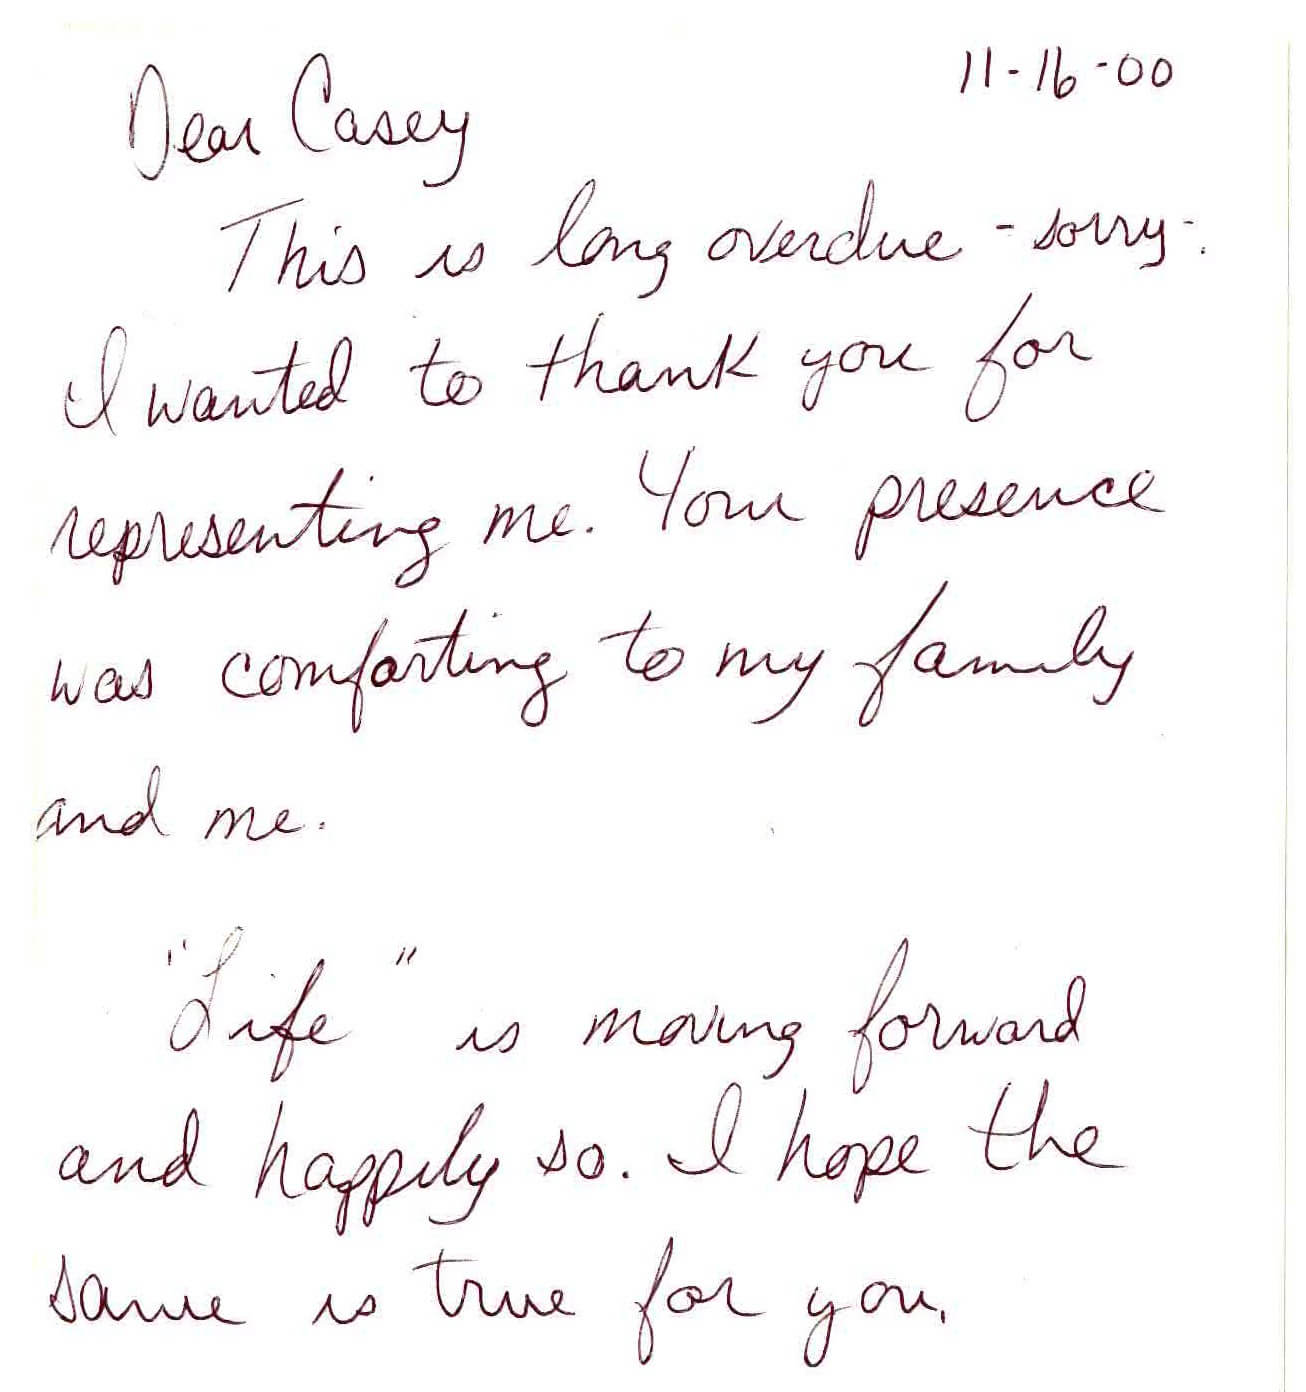 11-16-00
Dear Casey
This is long overdue - sorry -.
I wanted to thank you for
representing me. Your presence
was comforting to my family
and me.
"Life" is moving forward
and happily so. I hope the
same is true for you.